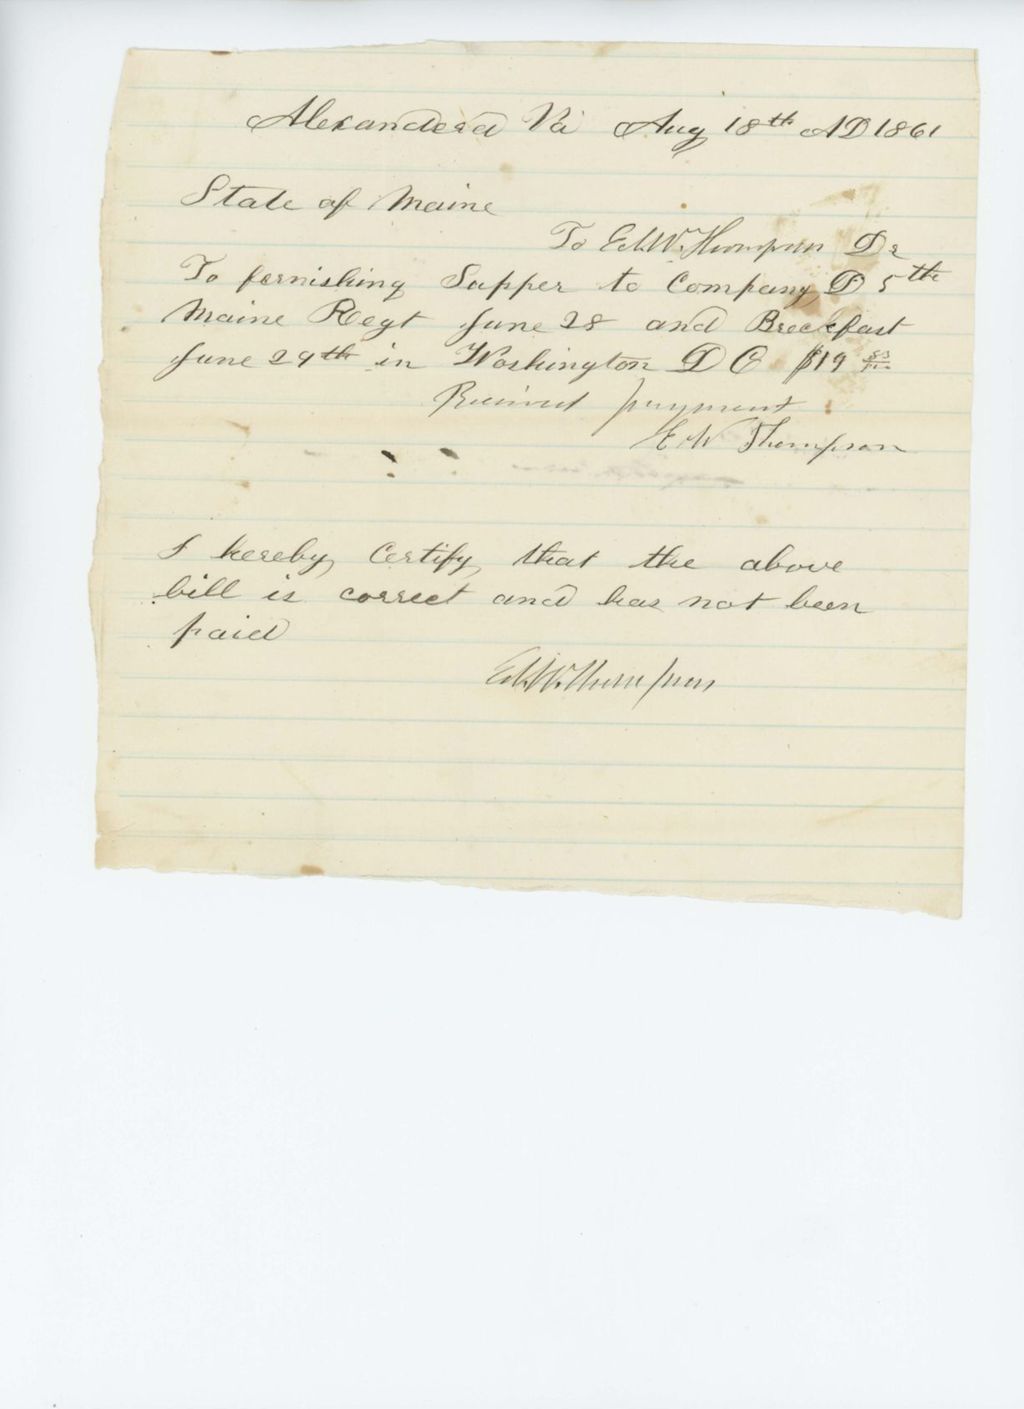 Alexanderd Va Aug 18th AD 1861
State of Maine
To Ed. W. Thompson Dr
To fornishing Supper to Company D 5th
Maine Regt June 28 and Breckfast
June 29th in Washington D C $19 83/100
Received payment
E W Thompson
I hereby Certify that the above
bill is correct and has not been
paid
Ed. W. Thompson